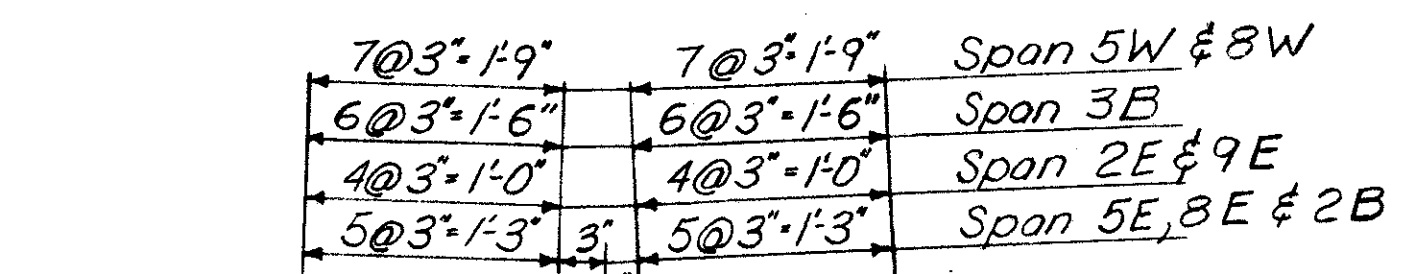 7@3"=1'-9" 7@3"=1'-9" Span 5W & 8W
6@3"=1'-6" 6@3"=1'-6" Span 3B
4@3"=1'-0" 4@3"=1'-0" Span 2E & 9E
5@3"=1'-3" 3" 5@3"=1'-3" Span 5E, 8E & 2B